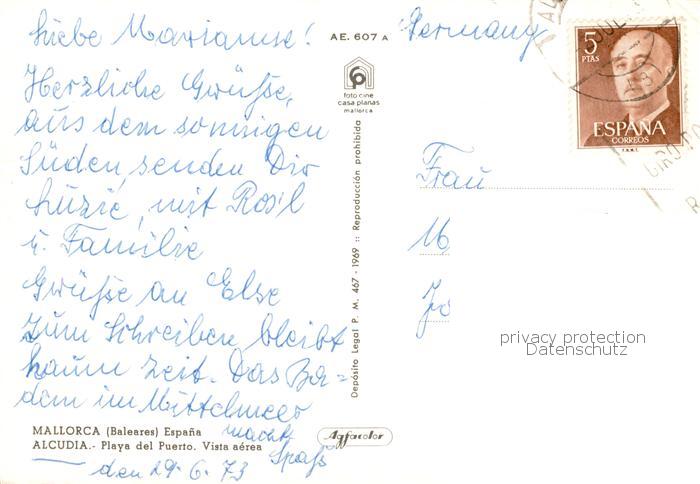 Liebe Marianne!
Herzliche Grüße,
aus dem sonnigen
Süden, senden Dir
Luzie, mit Rosil
u. Familie
Grüße an Else
Zum Schreiben bleibt
kaum Zeit. Das Ba=
dem im Mittelmeer
macht
Spaß
den 29.6.73
MALLORCA (Baleares) España
ALCUDIA.- Playa del Puerto. Vista aérea
AE. 607 A
foto cine
casa planas
mallorca
Depósito Legal P. M. 467 - 1969 :: Reproducción prohibida
Agfacolor
Germany
5
PTAS
ESPAÑA
CORREOS
F.N.M.T.
Frau
M
privacy protection
Datenschutz